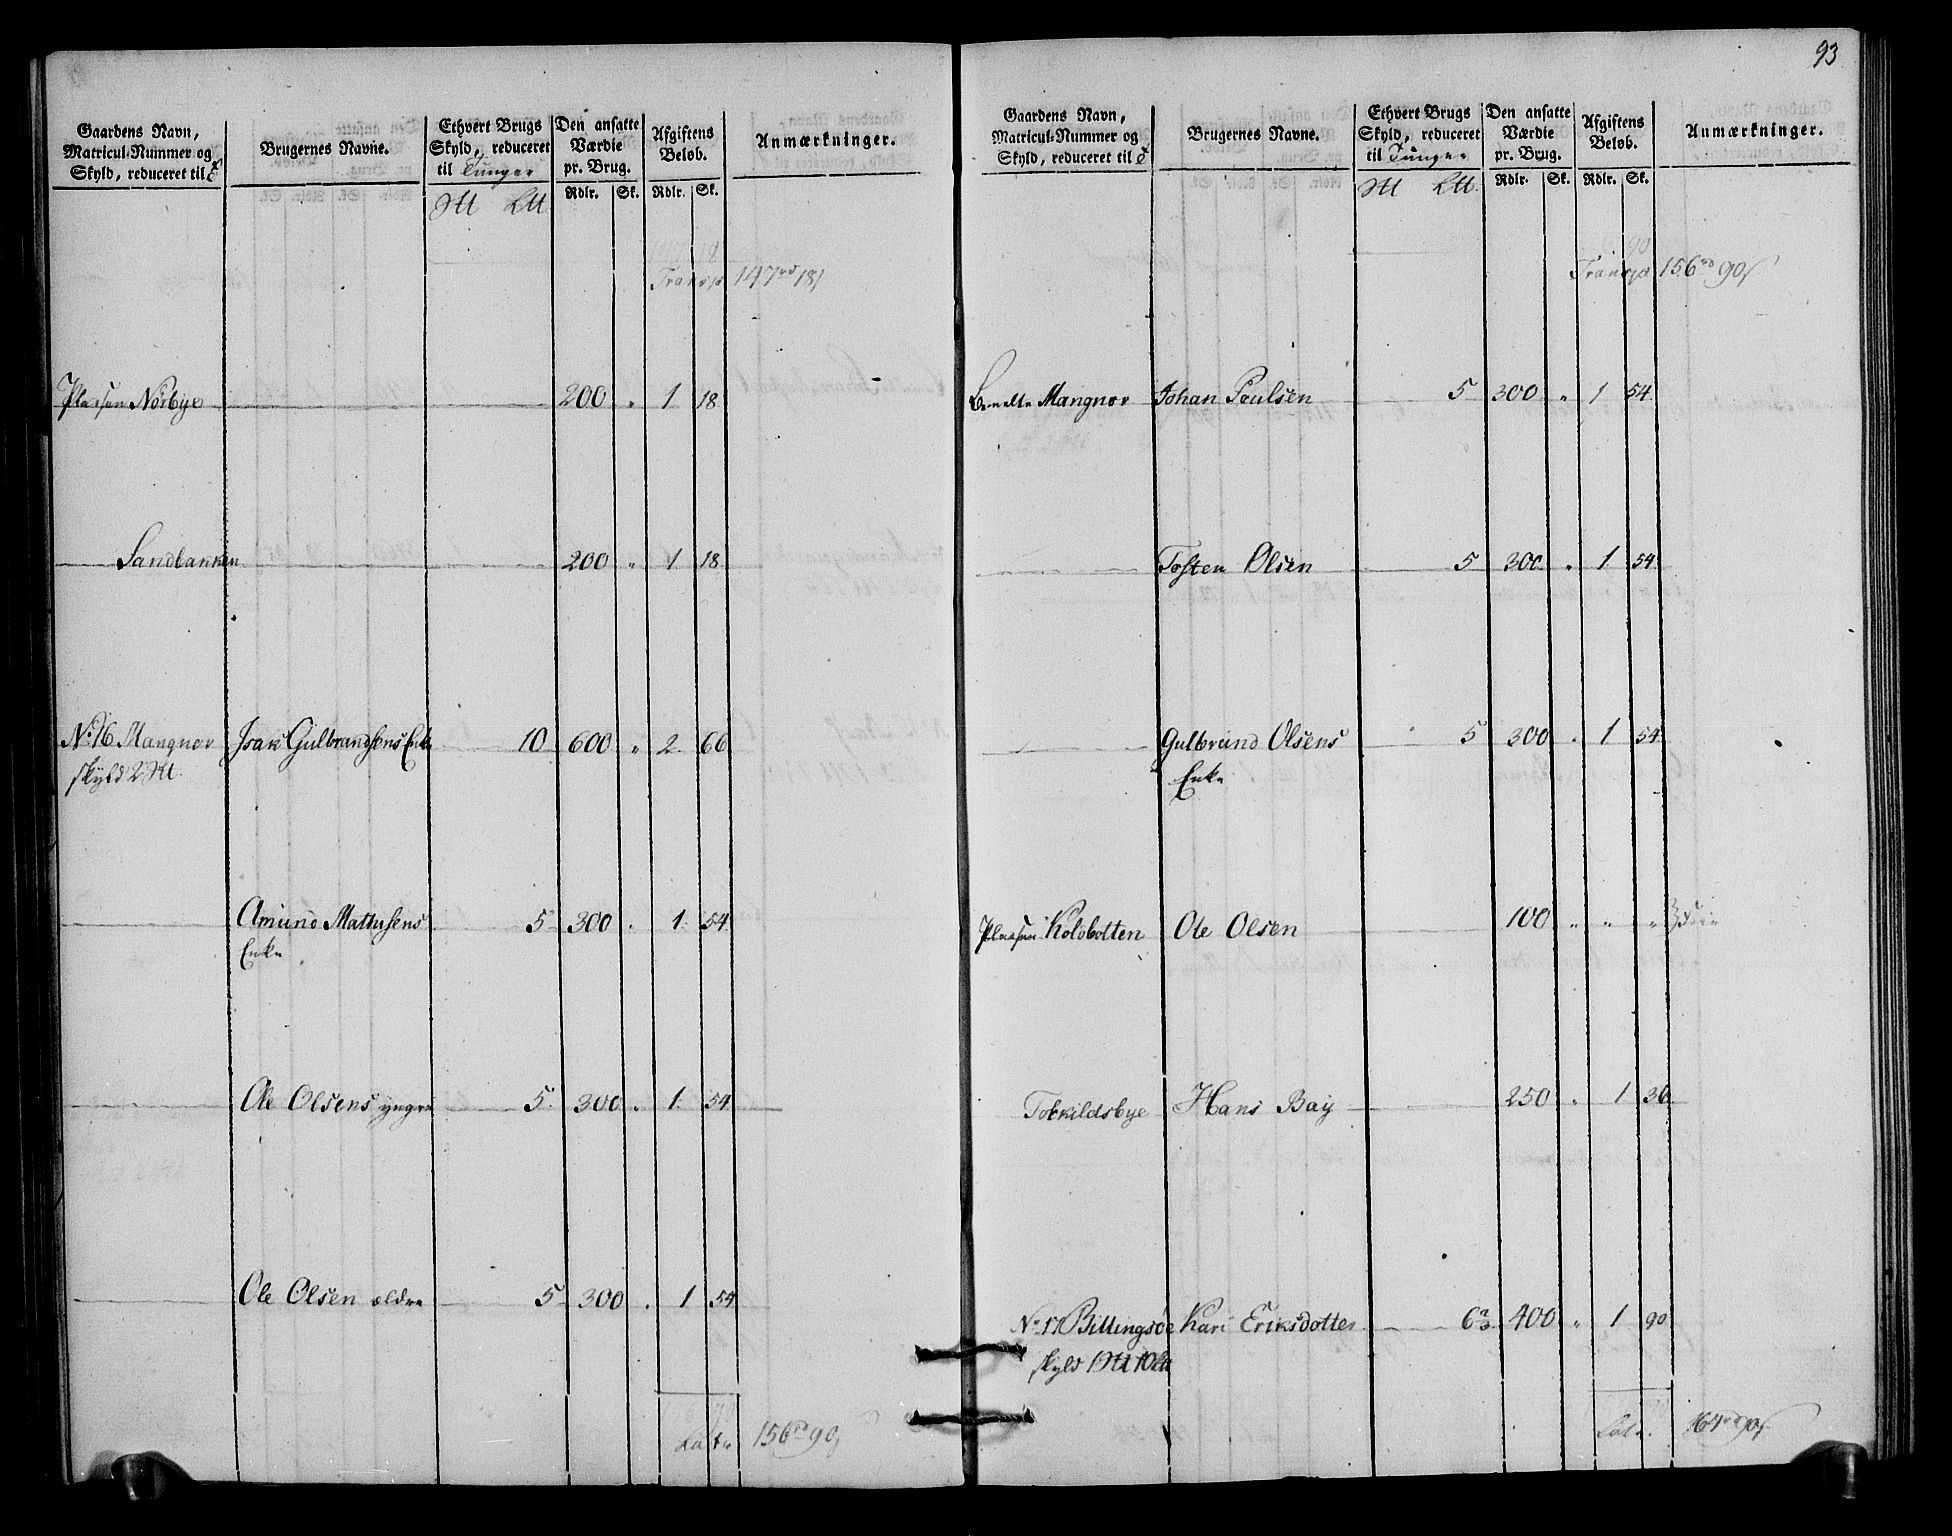 Gaardens Navn,
Matricul-Nummer og
Skyld, reduceret til
Brugernes Navne.
Ethvert Brugs
Skyld, reduceret
til Tunger
Den ansatte
Værdie
pr. Brug.
Rdlr. Sk.
Afgiftens
Beløb.
Rdlr. Sk.
Anmærkninger.
Transp 147 rd 18
Pladsen Norbye 200 " 1 18
Sandbakken 200 " 1 18
No. 16 Mangnor Isak Gulbrandsens Enke 10 600 " 2 66
skyld 2
Amund Mathisens 5 300 " 1 54
Enke
Ole Olsens yngre 5 300 " 1 54
Ole Olsen ældre 5 300 " 1 54
Lat 156 rd 90
93
Gaardens Navn,
Matricul-Nummer og
Skyld, reduceret til
Brugernes Navne.
Ethvert Brugs
Skyld, reduceret
til Tunger
Den ansatte
Værdie
pr. Brug.
Rdlr. Sk.
Afgiftens
Beløb.
Rdlr. Sk.
Anmærkninger.
Transp 156 rd 90
Mangnor Johan Poulsen 5 300 " 1 54
Tosten Olsen 5 300 " 1 54
Gulbrand Olsens 5 300 " 1 54
Enke
Pladsen Kolobotten Ole Olsen 100 " " "
Torkildsbye Hans Bay 250 " 1 36
No. 17 Billingsøe Kari Eriksdotter 6 2/3 400 " 1 90
skyld 1 10
Lat 164 rd 90